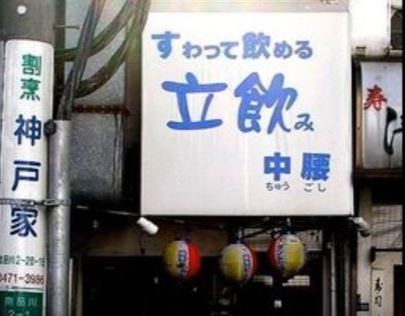 すわって飲める
立飲み
中腰
ちゅう ごし
割烹
神戸家
3471-3986
南品川
寿
寿司